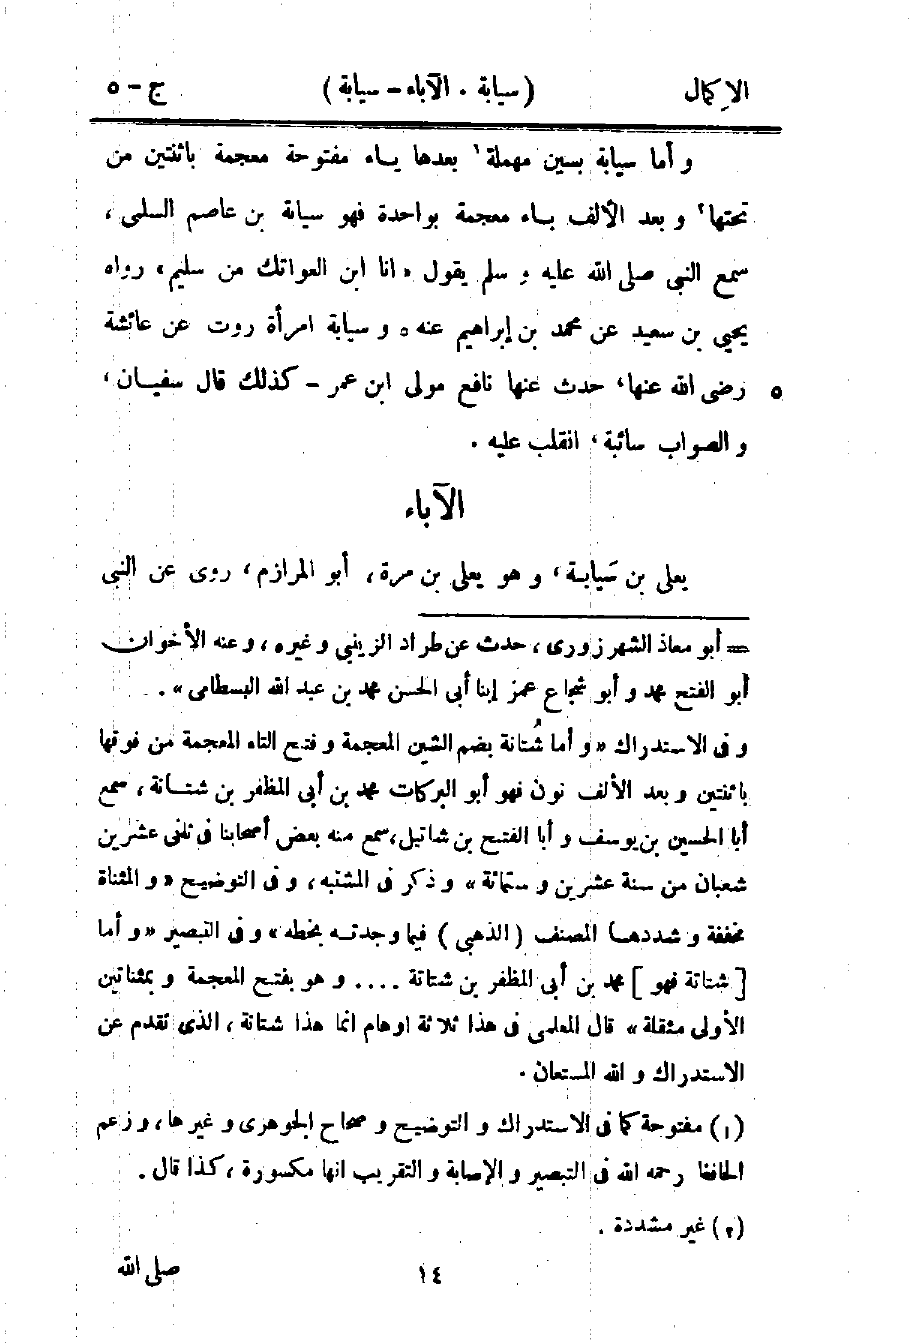 الإكمال ( سيابة . الآباء - سيابة ) ج - ٥
و أما سيابة بسين مهملة ١ بعدها يـاء مفتوحة معجمة باثنتين من
تحتها ٢ و بعد الألف بـاء معجمة بواحدة فهو سيابة بن عاصم السلمى ،
سمع النبى صلى الله عليه و سلم يقول « انا ابن العواتك من سليم ، رواه
يحيى بن سعيد عن محمد بن إبراهيم عنه ه و سيابة امرأة روت عن عائشة
رضى الله عنها ، حدث عنها نافع مولى ابن عمر - كذلك قال سفيـان ، ٥
و الصواب سائبة ، انقلب عليه .
الآباء
يعلى بن سَيابـة ، و هو يعلى بن مرة ، أبو المرازم ، روى عن النبى
= أبو معاذ الشهرزورى ، حدث عن طراد الزينبي و غيره ، و عنه الأخوان
أبو الفتح محمد و أبو شجاع عمر إبنا أبى الحسن محمد بن عبد الله البسطامى » .
و فى الاستدراك « و أما شُتانة بضم الشين المعجمة و فتح التاء المعجمة من فوقها
باثنتين و بعد الألف نون فهو أبو البركات محمد بن أبى المظفر بن شتـانة ، سمع
أبا الحسين بن يوسف و أبا الفتح بن شاتيل ، سمع منه بعض أصحابنا فى ثانى عشرين
شعبان من سنة عشرين و ستمائة » و ذكر فى المشتبه ، و فى التوضيح « و المثناة
مخففة و شددهـا المصنف ( الذهبي ) فيما وجدتـه بخطه » و فى التبصير « و أما
[ شتاتة فهو ] محمد بن أبى المظفر بن شتاتة .... و هو بفتح المعجمة و بمثناتين
الأولى مثقلة » قال المعلمى فى هذا ثلاثة اوهام انما هذا شتانة ، الذى تقدم عن
الاستدراك و الله المستعان .
(١) مفتوحة كما فى الاستدراك و التوضيح و صحاح الجوهرى و غيرها ، و زعم
الحافظ رحمه الله فى التبصير و الإصابة و التقريب انها مكسورة ، كذا قال .
(٢) غير مشددة .
١٤ صلى الله